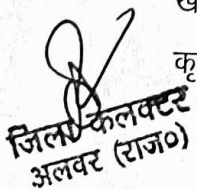 ख
कृ
जिला कलक्टर
अलवर (राज०)